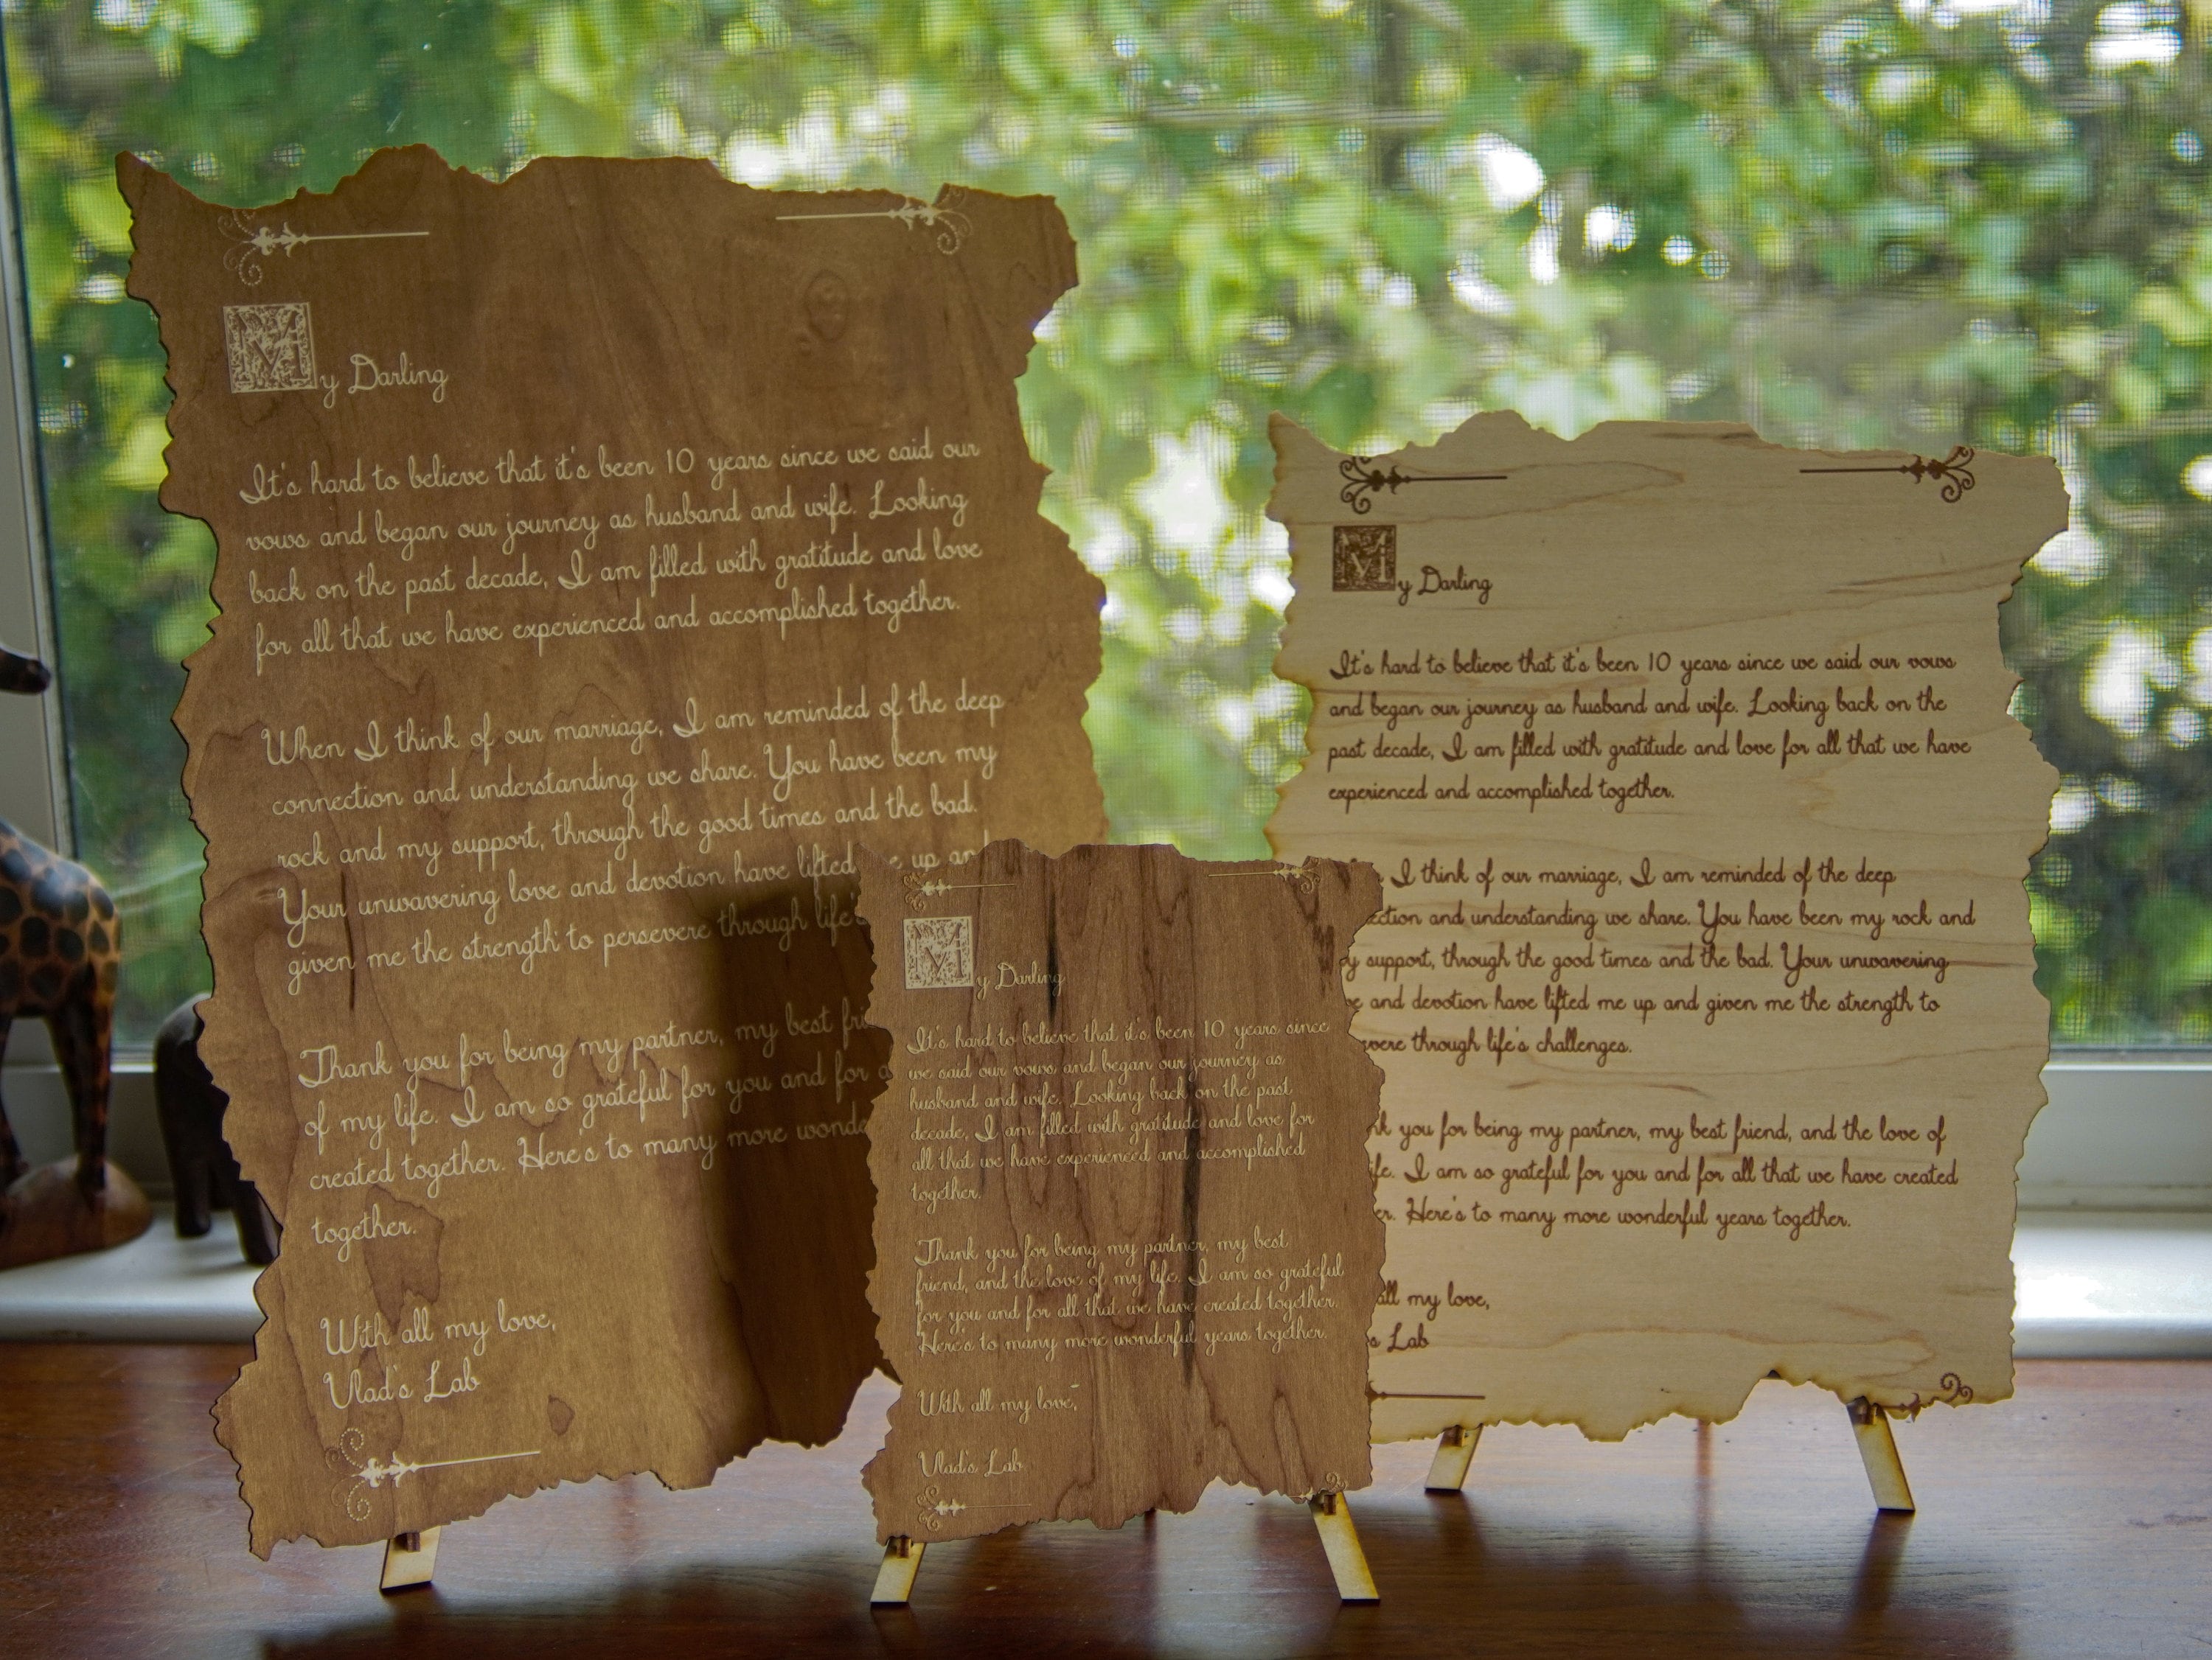 My Darling
It's hard to believe that it's been 10 years since we said our
vows and began our journey as husband and wife. Looking
back on the past decade, I am filled with gratitude and love
for all that we have experienced and accomplished together.
When I think of our marriage, I am reminded of the deep
connection and understanding we share. You have been my
rock and my support, through the good times and the bad.
Your unwavering love and devotion have lifted e up an
given me the strength to persevere through life's
Thank you for being my partner, my best fri
of my life. I am so grateful for you and for a
created together. Here's to many more wonde
together.
With all my love,
Vlad's Lab
My Darling
It's hard to believe that it's been 10 years since
we said our vows and began our journey as
husband and wife. Looking back on the past
decade, I am filled with gratitude and love for
all that we have experienced and accomplished
together.
Thank you for being my partner, my best
friend, and the love of my life. I am so grateful
for you and for all that we have created together.
Here's to many more wonderful years together.
With all my love,
Vlad's Lab
My Darling
It's hard to believe that it's been 10 years since we said our vows
and began our journey as husband and wife. Looking back on the
past decade, I am filled with gratitude and love for all that we have
experienced and accomplished together.
I think of our marriage, I am reminded of the deep
ection and understanding we share. You have been my rock and
y support, through the good times and the bad. Your unwavering
e and devotion have lifted me up and given me the strength to
vere through life's challenges.
nk you for being my partner, my best friend, and the love of
ife. I am so grateful for you and for all that we have created
er. Here's to many more wonderful years together.
all my love,
s Lab